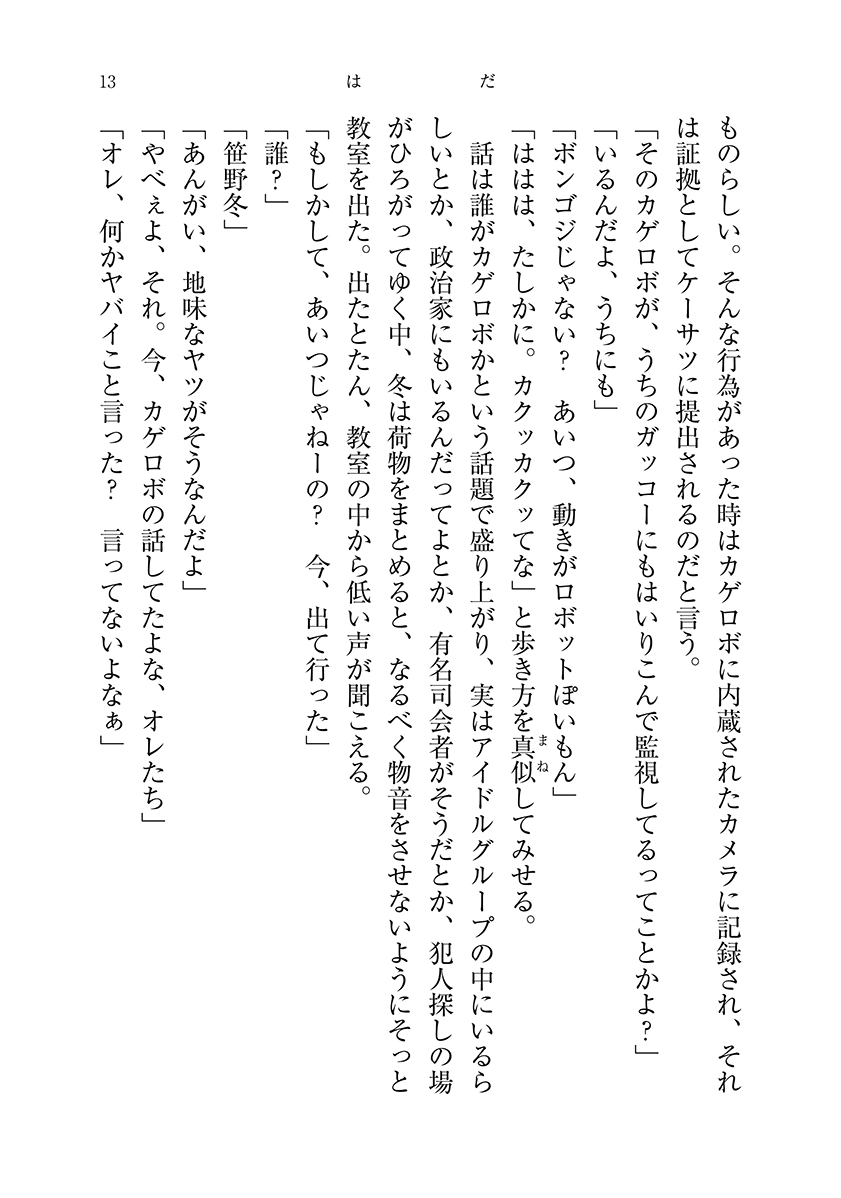 だ
は
13
ものらしい。そんな行為があった時はカゲロボに内蔵されたカメラに記録され、それ
は証拠としてケーサツに提出されるのだと言う。
「そのカゲロボが、うちのガッコーにもはいりこんで監視してるってことかよ?」
「いるんだよ、うちにも」
「ボンゴジじゃない?　あいつ、動きがロボットぽいもん」
「ははは、たしかに。カクッカクッてな」と歩き方を真似してみせる。
まね
　話は誰がカゲロボかという話題で盛り上がり、実はアイドルグループの中にいるら
しいとか、政治家にもいるんだってよとか、有名司会者がそうだとか、犯人探しの場
がひろがってゆく中、冬は荷物をまとめると、なるべく物音をさせないようにそっと
教室を出た。出たとたん、教室の中から低い声が聞こえる。
「もしかして、あいつじゃねーの?　今、出て行った」
「誰?」
「笹野冬」
「あんがい、地味なヤツがそうなんだよ」
「やべぇよ、それ。今、カゲロボの話してたよな、オレたち」
「オレ、何かヤバイこと言った?　言ってないよなぁ」